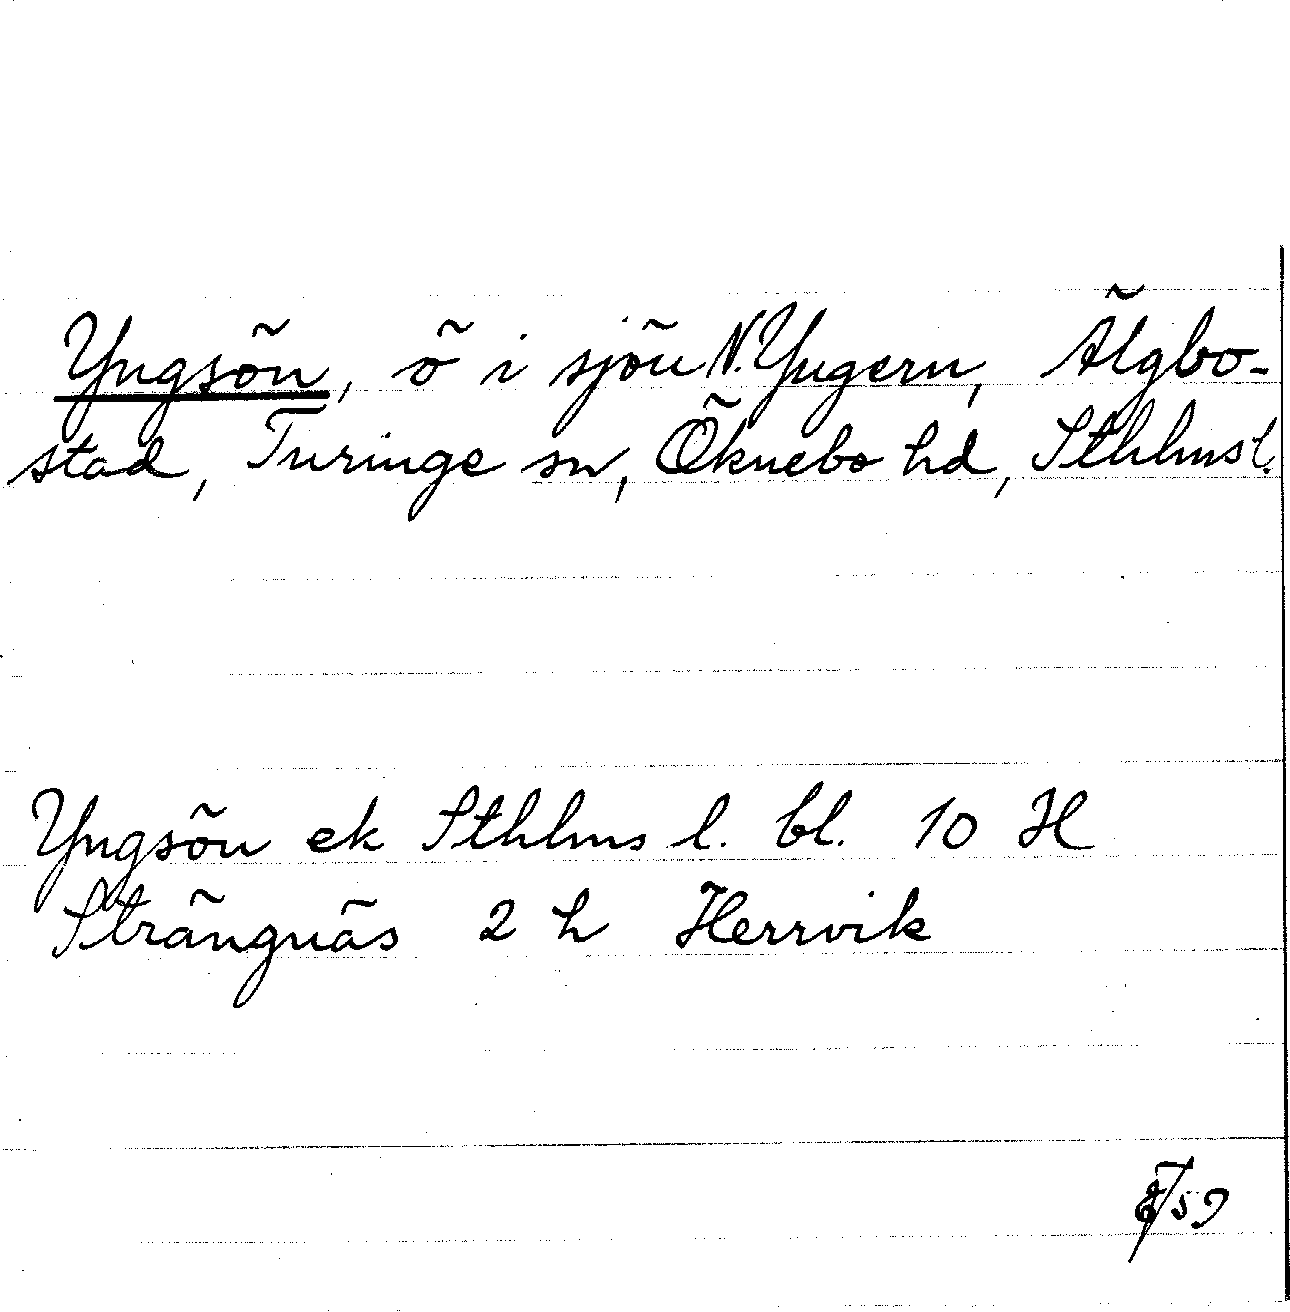 Yngsön, ö i sjön N. Yngern, Älgbo-
stad, Turinge sn, Öknebo hd, Sthlms l.
Yngsön ek Sthlms l. bl. 10 H
Strängnäs 2 h Herrvik